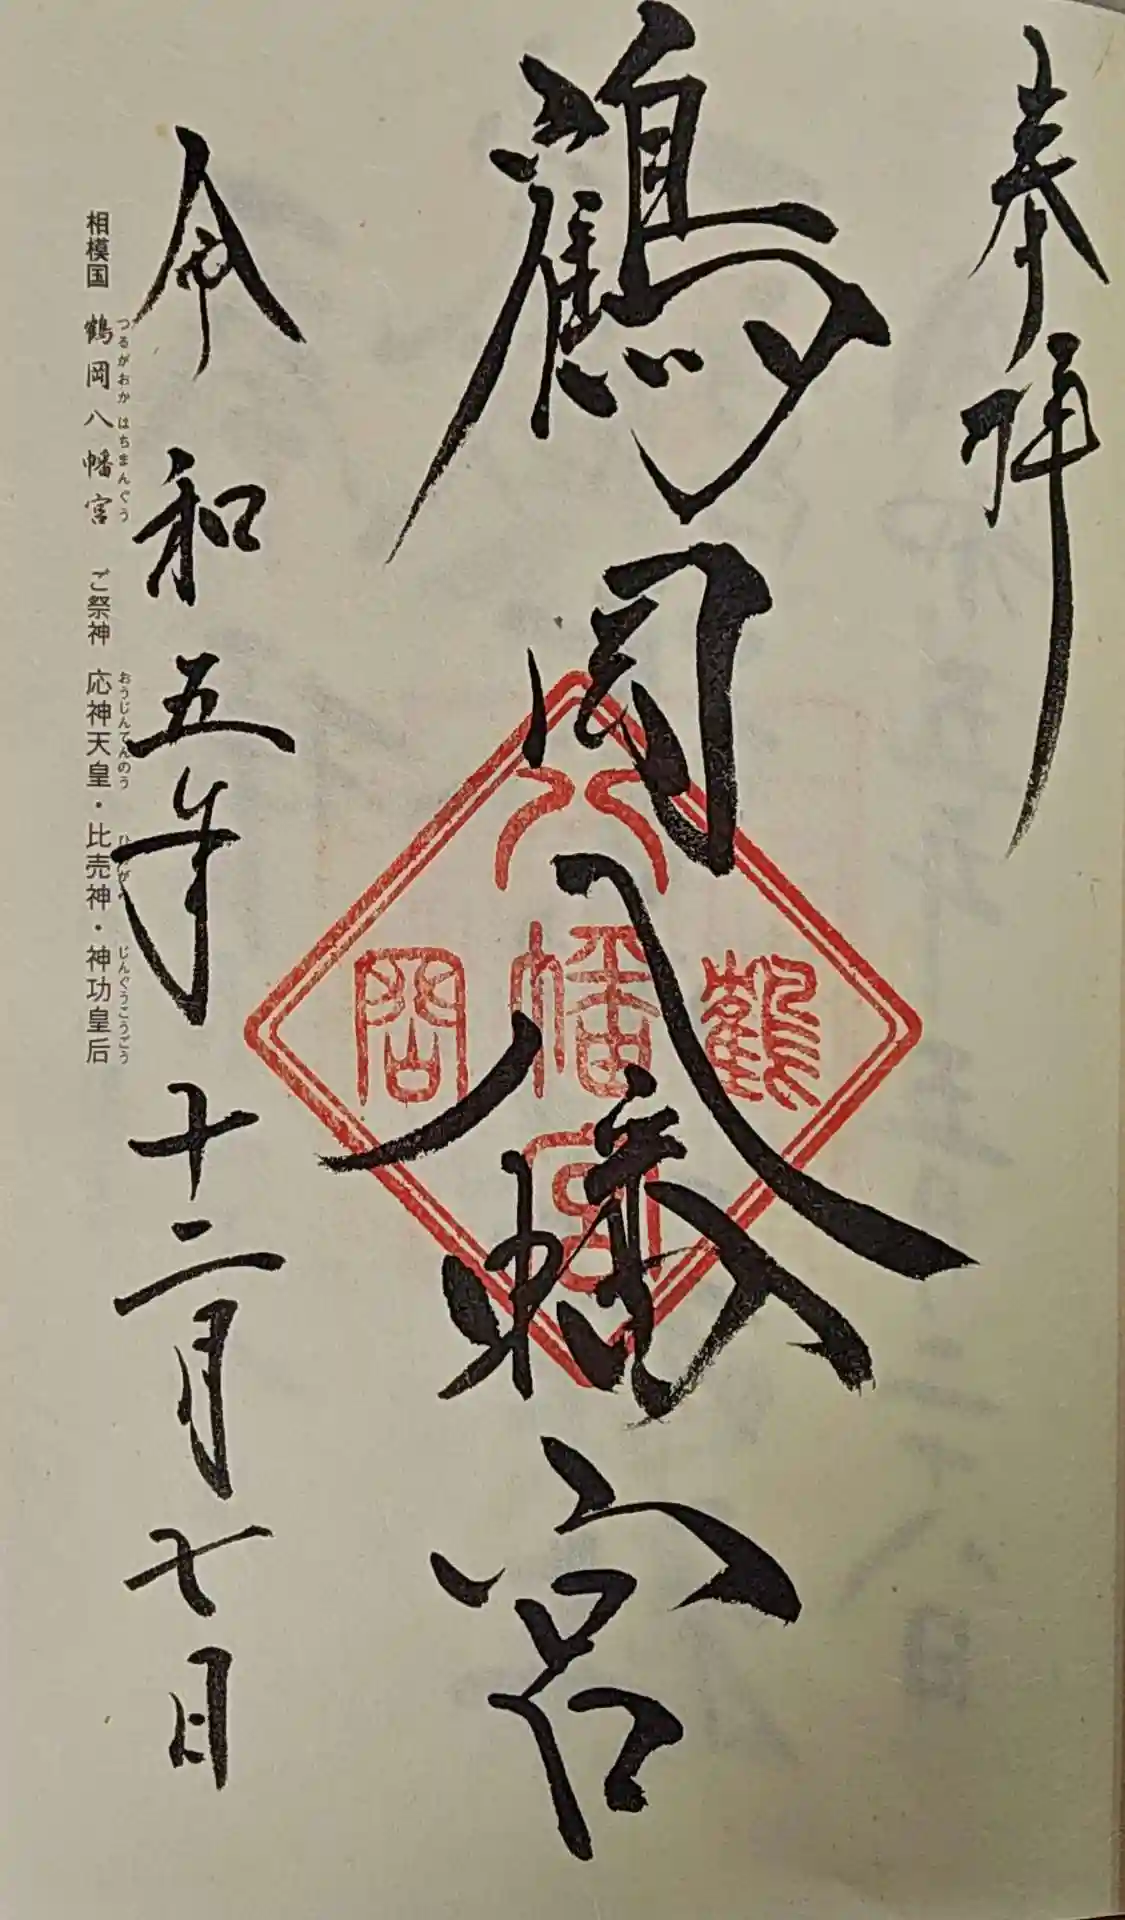 奉拝
鶴岡八幡宮
八幡宮
鶴
岡
令和五年十二月七日
相模国 鶴岡八幡宮 ご祭神 応神天皇・比売神・神功皇后
つるがおか はちまんぐう おうじんてんのう じんぐうこうごう